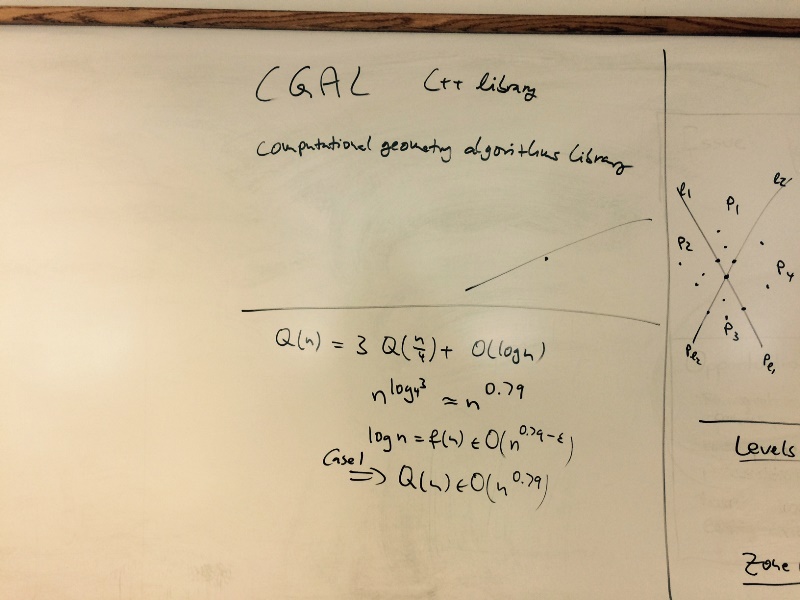 CGAL C++ library
Computational geometry algorithms library
Q(n) = 3 Q(n/4) + O(log n)
n^log₄3 ≈ n^0.79
log n = f(n) ∈ O(n^0.79-ε)
Case 1
⇒ Q(n) ∈ O(n^0.79)
l1 l2
P1
P2
P4
P3
Pl2 Pl1
Levels
Zone